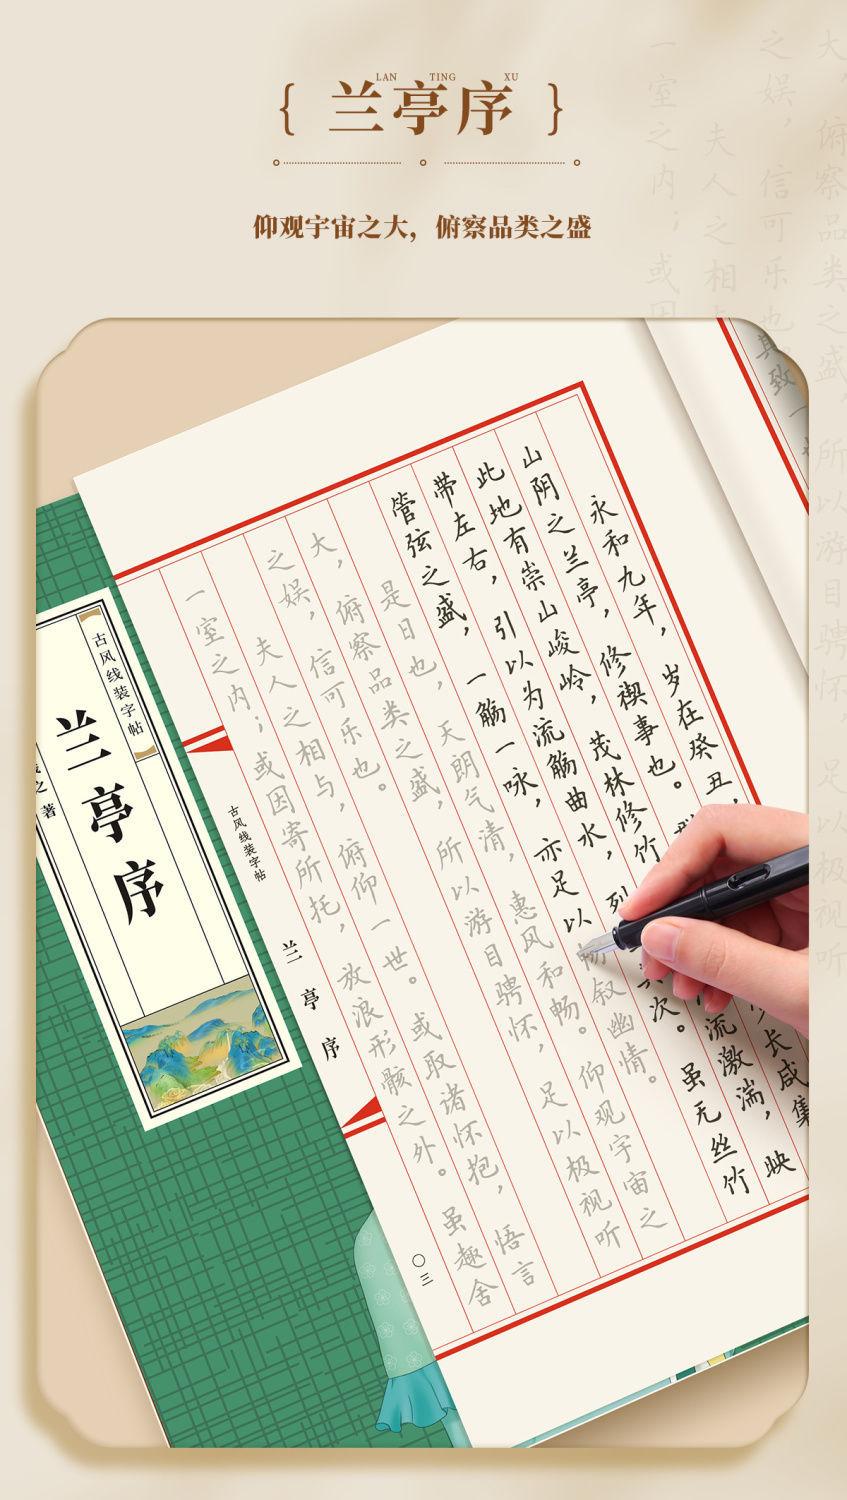 LAN TING XU
兰亭序
仰观宇宙之大，俯察品类之盛
大，俯察品类之盛，所以游目骋怀，足以极视听
之娱，信可乐也
夫人之相与
一室之内；或因
其致一
永和九年，岁在癸丑，
山阴之兰亭，修禊事也。群 少长咸集
此地有崇山峻岭，茂林修竹 流激湍，映
带左右，引以为流觞曲水，列 其次。虽无丝竹
管弦之盛，一觞一咏，亦足以畅叙幽情。
是日也，天朗气清，惠风和畅。仰观宇宙之
大，俯察品类之盛，所以游目骋怀，足以极视听
之娱，信可乐也。
夫人之相与，俯仰一世。或取诸怀抱，悟言
一室之内；或因寄所托，放浪形骸之外。虽趣舍
古风线装字帖
兰亭序
〇三
古风线装字帖
兰亭序
之 著